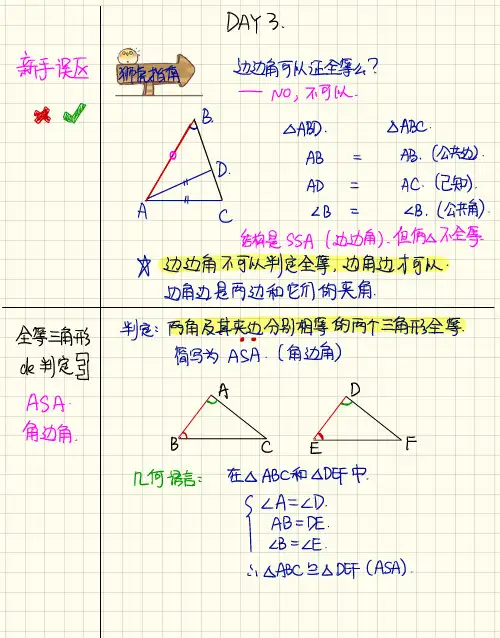 DAY 3.
新手误区
边边角可以证全等么?
— NO, 不可以.
B.
D.
A
C
△ABD. △ABC.
AB = AB. (公共边)
AD = AC. (已知)
∠B = ∠B. (公共角)
结构是 SSA (边边角). 但俩△不全等
☆ 边边角不可以判定全等, 边角边才可以.
边角边是两边和它们的夹角.
全等三角形
de 判定
ASA.
角边角.
判定: 两角及其夹边分别相等的两个三角形全等.
简写为 ASA. (角边角)
A D
B C E F
几何语言: 在△ABC和△DEF中.
∠A=∠D.
AB=DE.
∠B=∠E.
∴ △ABC≌△DEF (ASA).